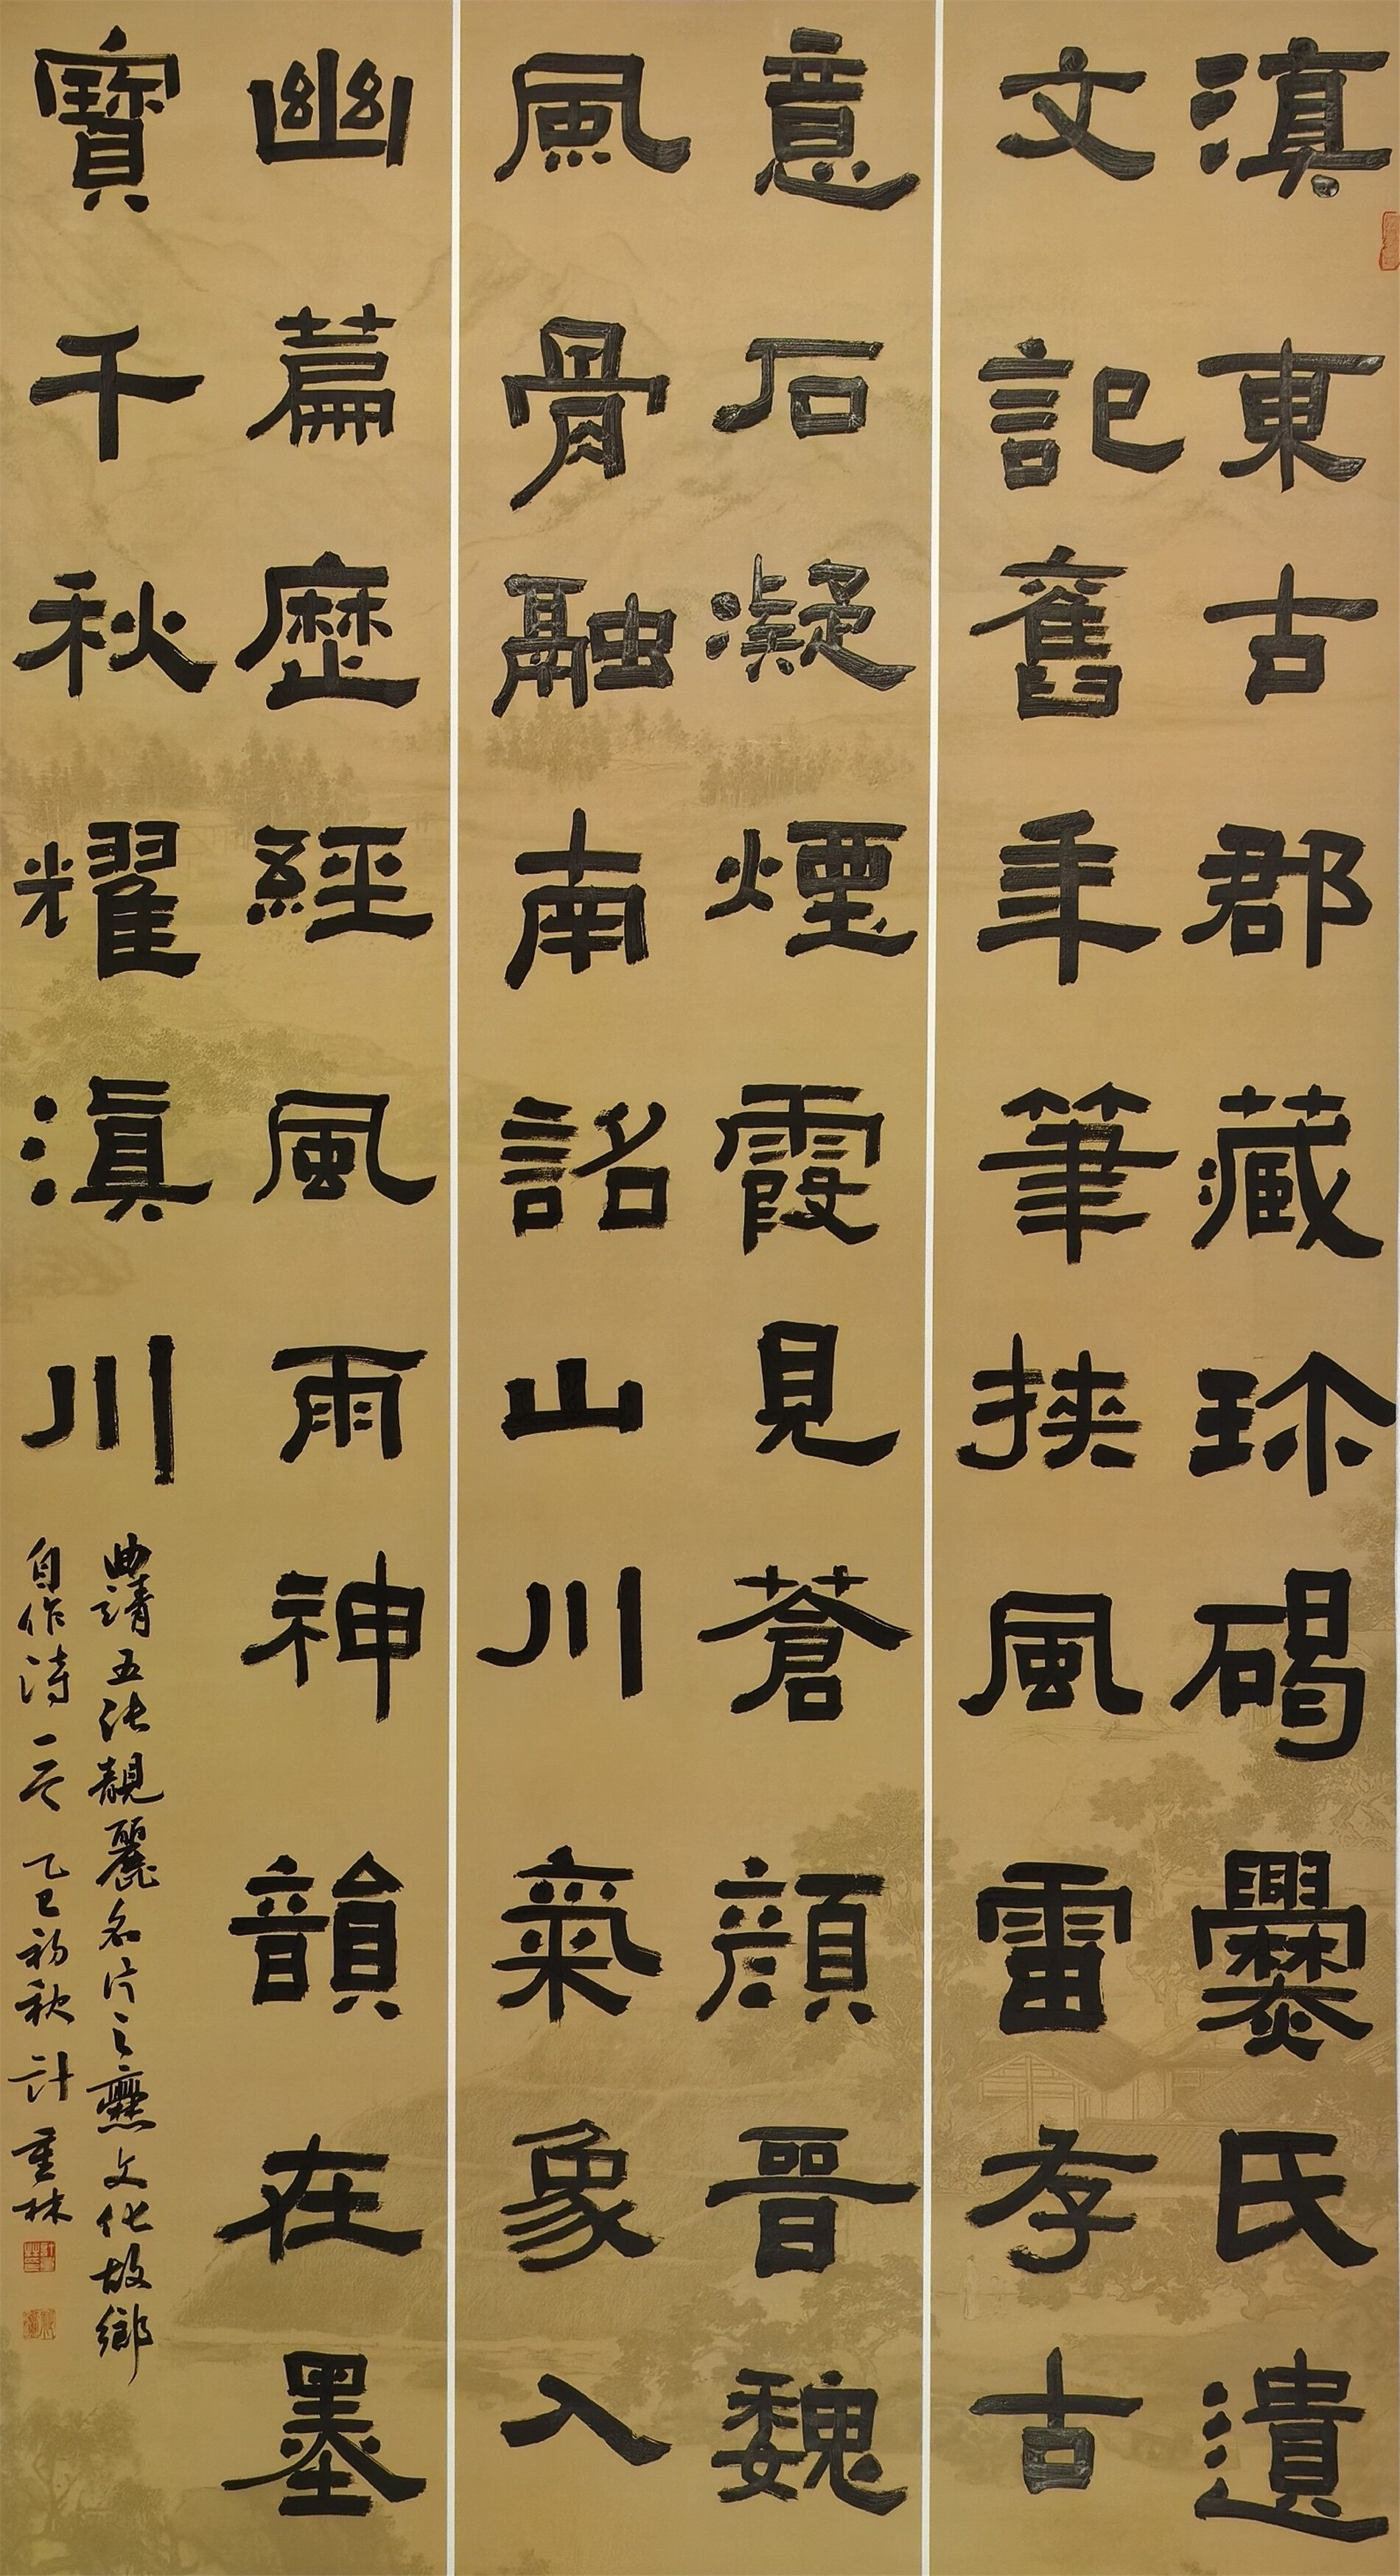 滇東古郡藏珎碣爨氏遺
文記舊年筆挾風雷存古
意石凝煙霞見蒼顔晉魏
風骨融南詔山川氣象入
幽篇歷經風雨神韻在墨
寶千秋耀滇川
曲靖五張靚麗名片之爨文化故鄉
自作詩一首乙巳初秋計重林